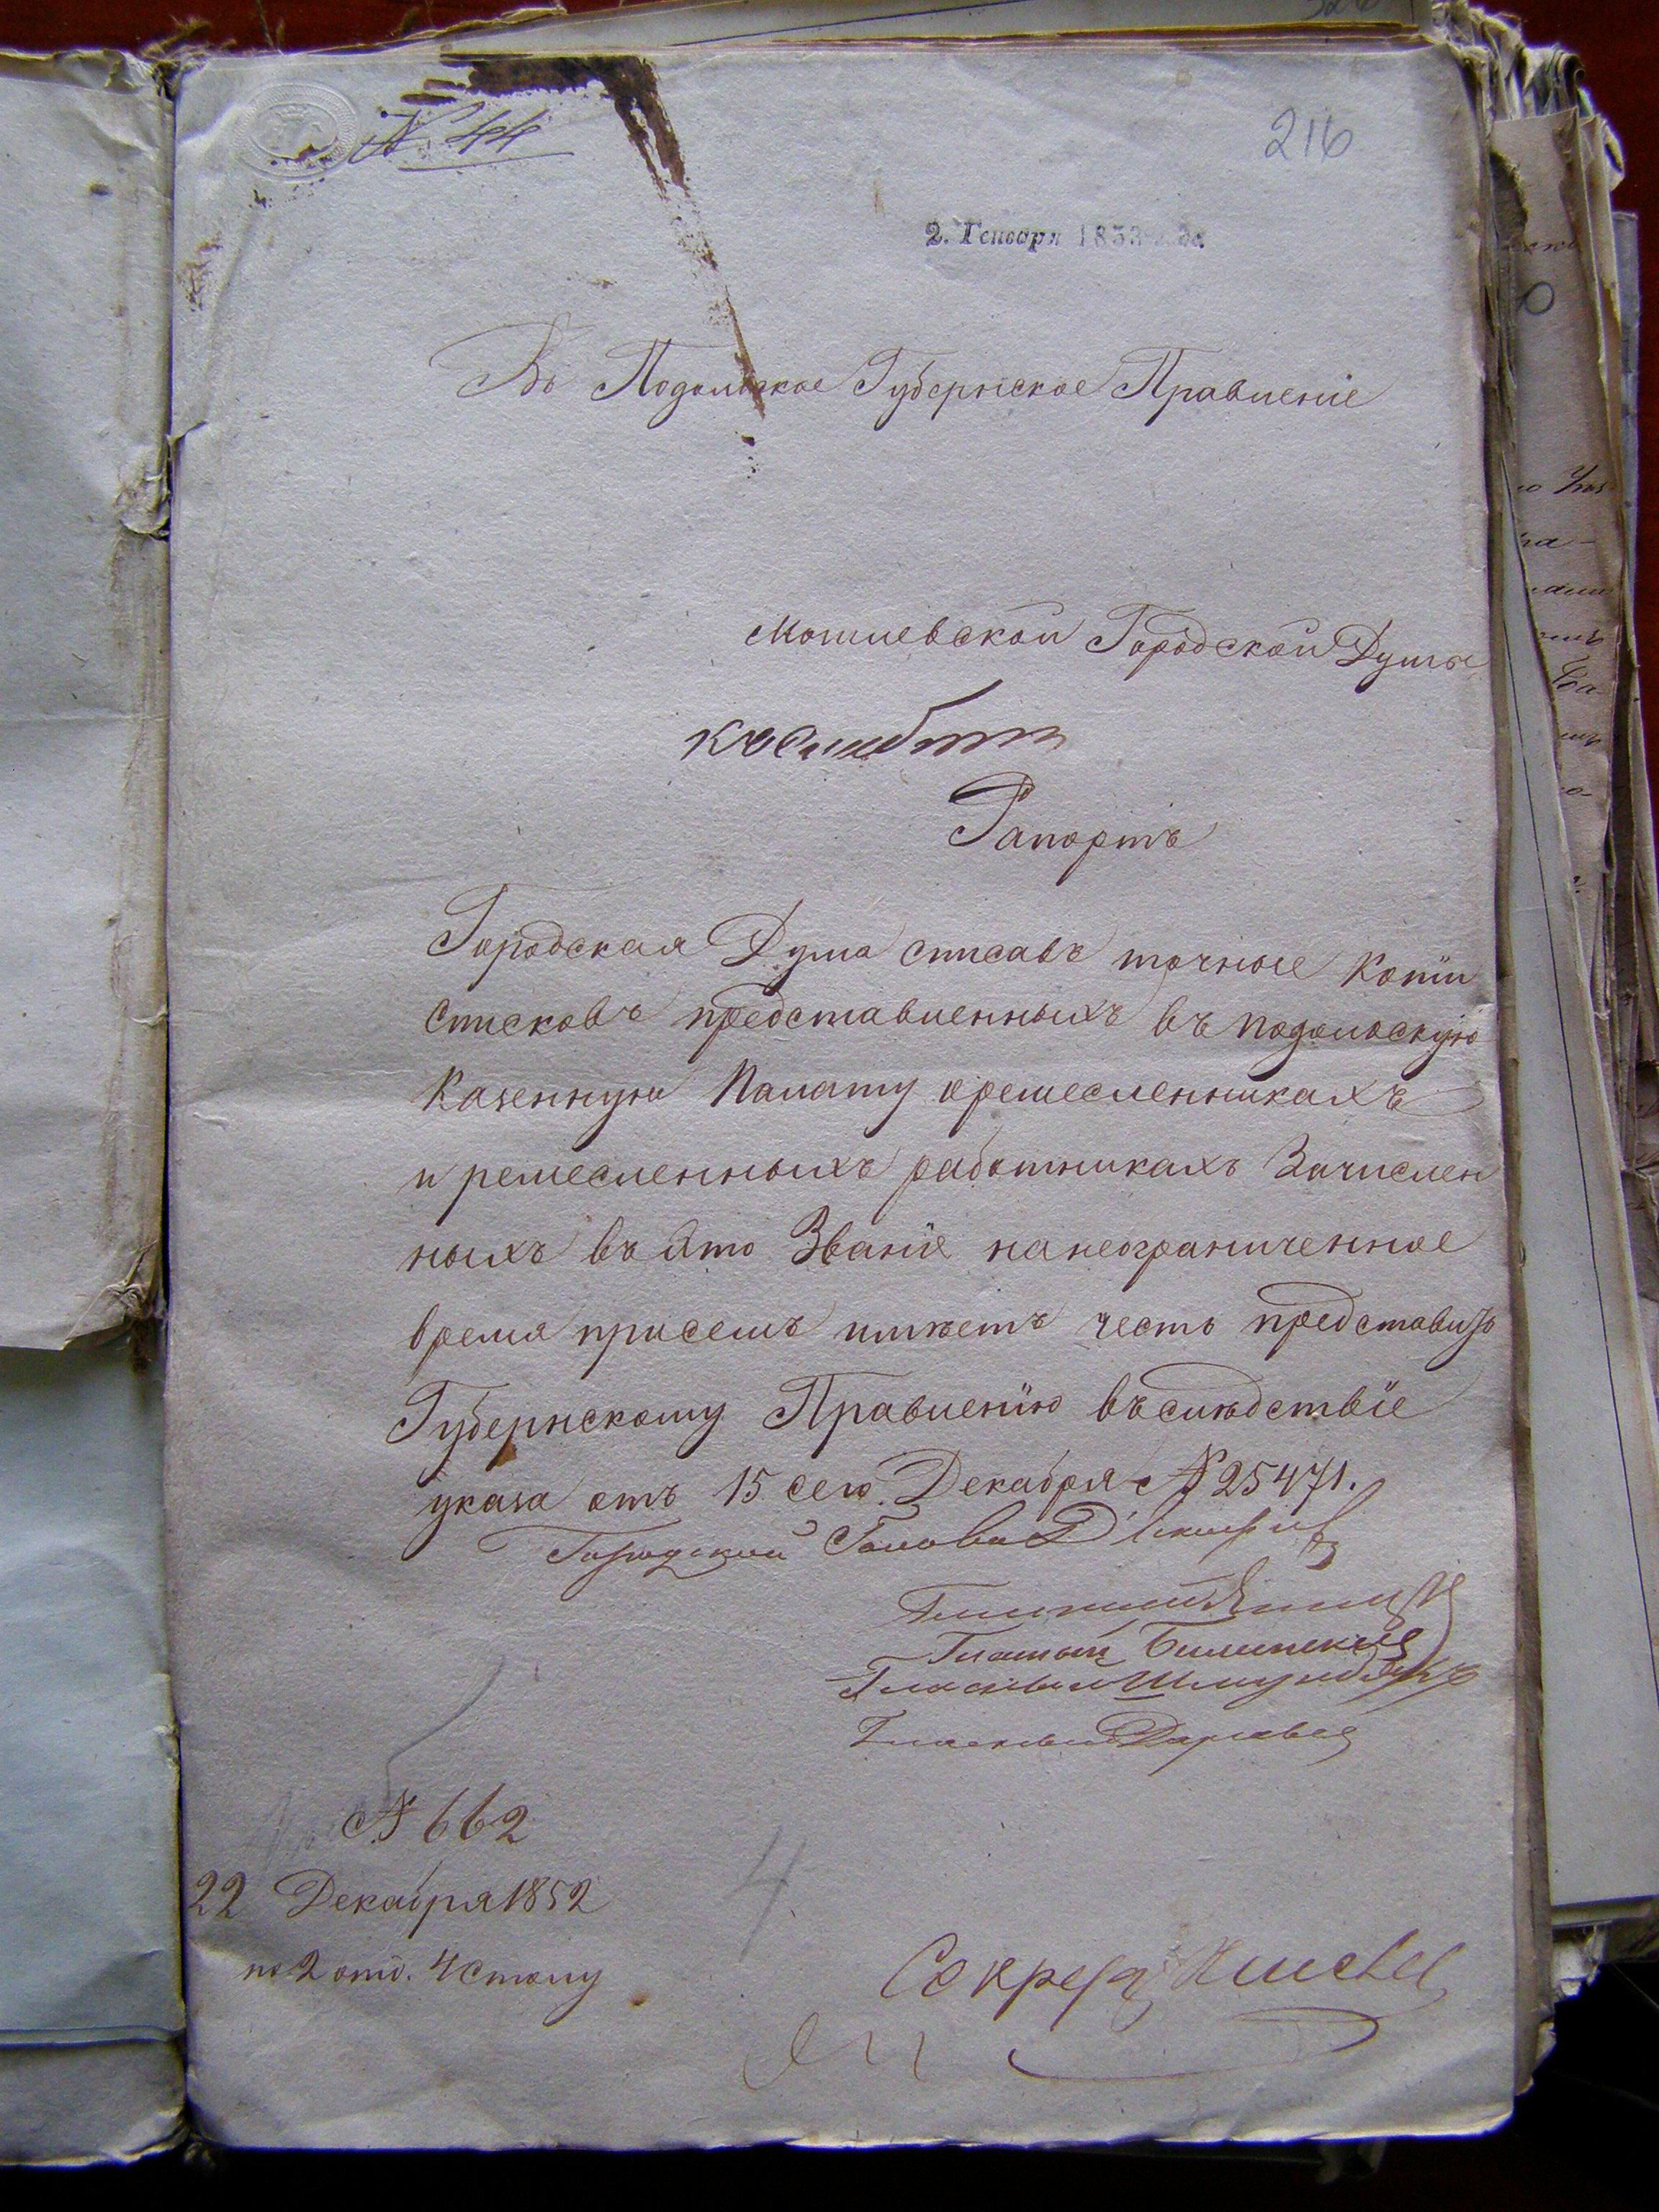 № 44
216
2. Генваря 1853 года
Въ Подольское Губернское Правленіе
Могилевской Городской Думы
Рапортъ
Городская Дума списавъ точные копіи
списковъ представленныхъ въ подольскую
Казенную Палату оремесленникахъ
и ремесленныхъ работникахъ Зачислен
ныхъ въ это Званіе нанеограниченное
время присемъ имѣетъ честь представить
Губернскому Правленію въслѣдствіе
указа отъ 15 сего Декабря № 25471.
Городской Голова
Гласный
Гласный Билинскій
Гласный
Гласный
№ 662
22 Декабря 1852
по 2 отд. 4 столу
4
Секрет